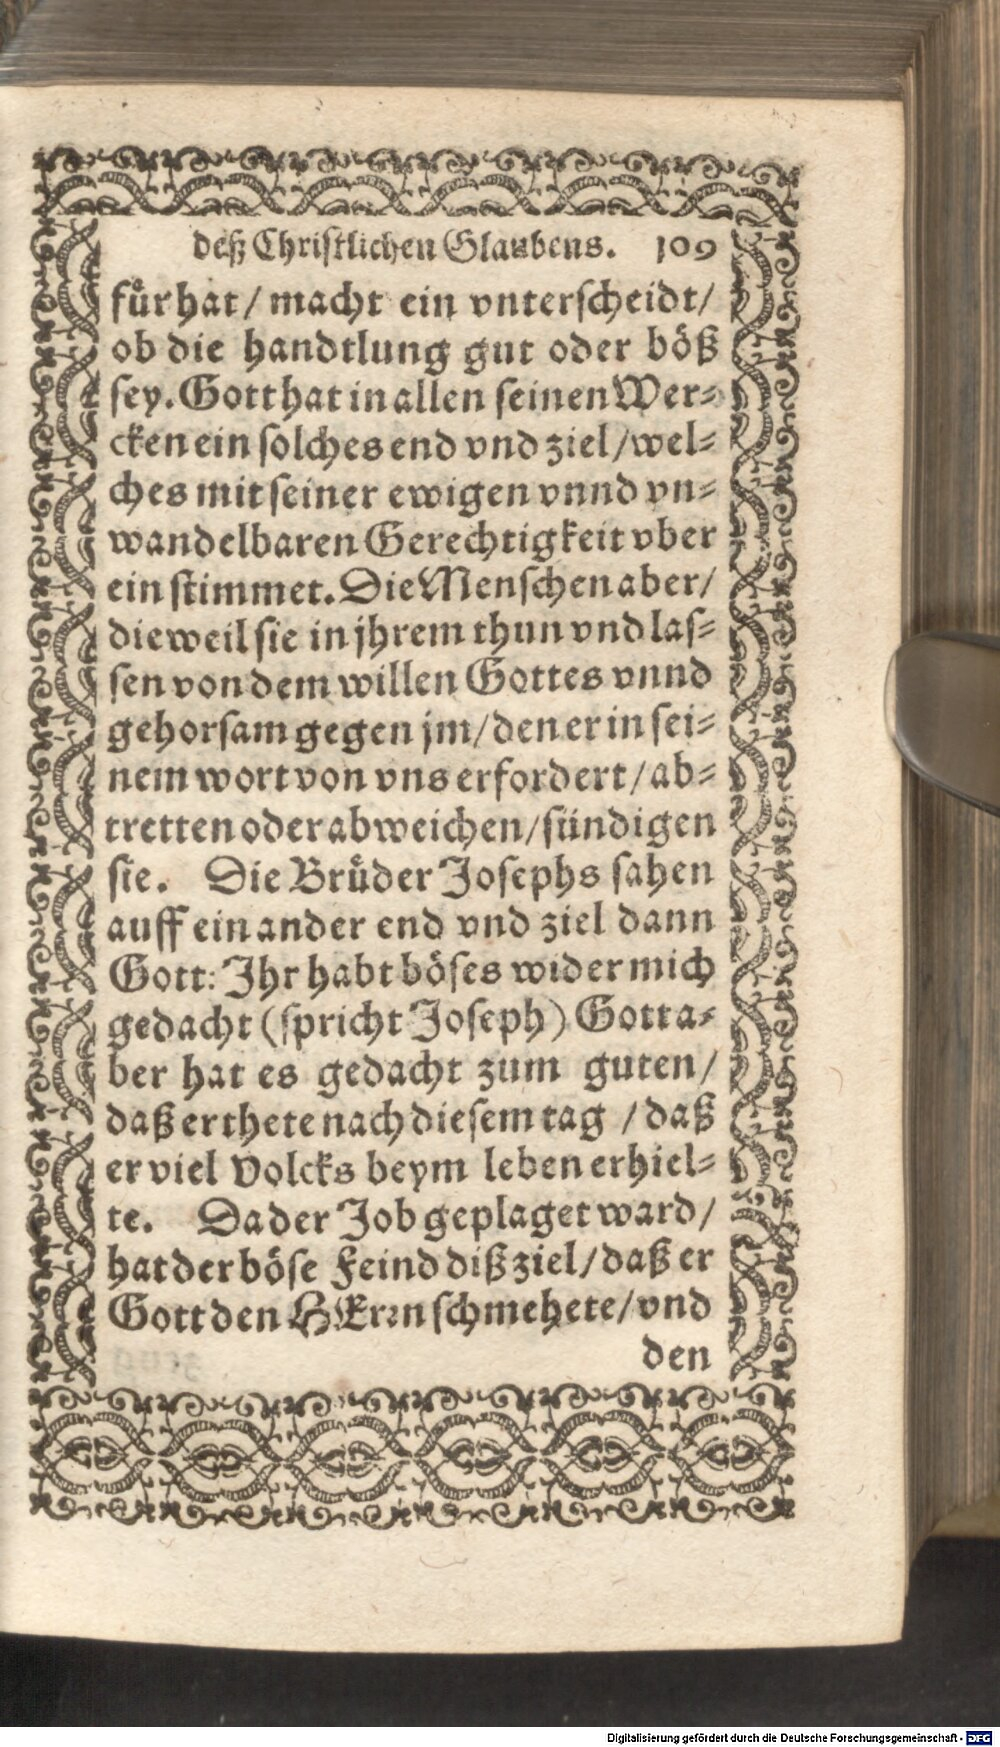 deß Christlichen Glaubens. 109
fuͤr hat / macht ein vnterscheidt /
ob die handtlung gut oder böß
sey. Gott hat in allen seinen Wer-
cken ein solches end vnd ziel / wel-
ches mit seiner ewigen vnnd vn-
wandelbaren Gerechtigkeit vber
ein stimmet. Die Menschen aber /
dieweil sie in jhrem thun vnd las-
sen von dem willen Gottes vnnd
gehorsam gegen jm / den er in sei-
nem wort von vns erfordert / ab-
tretten oder abweichen / sündigen
sie. Die Bruͤder Josephs sahen
auff ein ander end vnd ziel dann
Gott: Ihr habt böses wider mich
gedacht (spricht Joseph) Gott a-
ber hat es gedacht zum guten /
daß er thete nach diesem tag / daß
er viel Volcks beym leben erhiel-
te. Da der Job geplaget ward /
hat der böse Feind diß ziel / daß er
Gott den HErrn schmehete / vnd
den
Digitalisierung gefördert durch die Deutsche Forschungsgemeinschaft - DFG